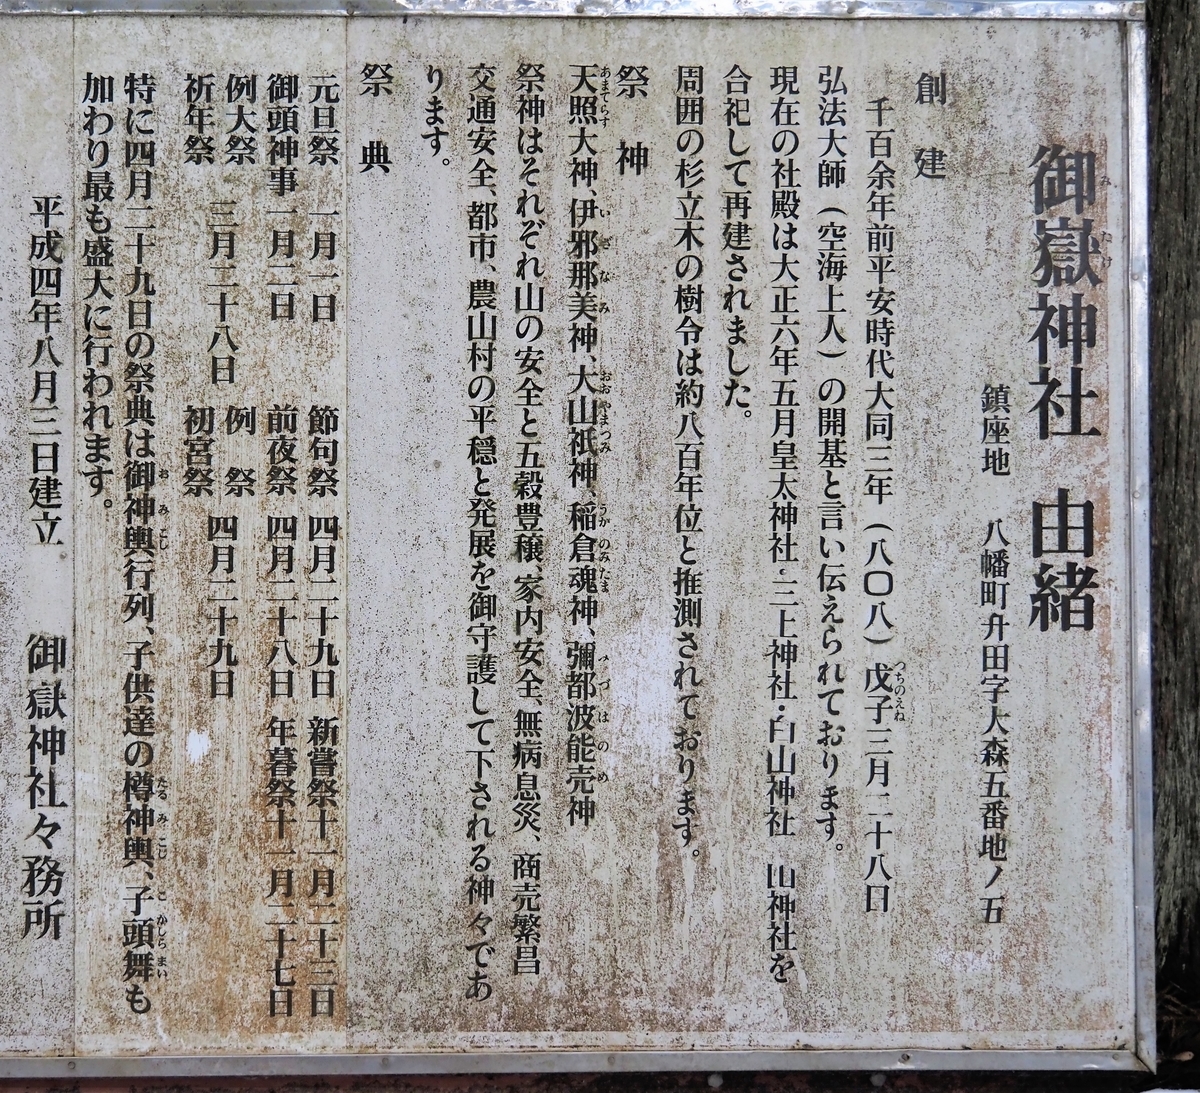 御嶽神社 由緒
鎮座地 八幡町升田字大森五番地ノ五
創建
千百余年前平安時代大同三年（八〇八）戊子三月二十八日
弘法大師（空海上人）の開基と言い伝えられております。
現在の社殿は大正六年五月皇太神社・三上神社・白山神社 山神社を
合祀して再建されました。
周囲の杉立木の樹令は約八百年位と推測されております。
祭神
天照大神、伊邪那美神、大山祇神、稲倉魂神、彌都波能売神
祭神はそれぞれ山の安全と五穀豊穣、家内安全、無病息災、商売繁昌
交通安全、都市、農山村の平穏と発展を御守護して下される神々であ
ります。
祭典
元旦祭 一月一日 節句祭 四月二十九日 新嘗祭 十一月二十三日
御頭神事 一月二日 前夜祭 四月二十八日 年暮祭 十二月二十七日
例大祭 三月二十八日 例祭 四月二十九日
祈年祭 初宮祭
特に四月二十九日の祭典は御神輿行列、子供達の樽神輿、子頭舞も
加わり最も盛大に行われます。
平成四年八月三日建立 御嶽神社々務所